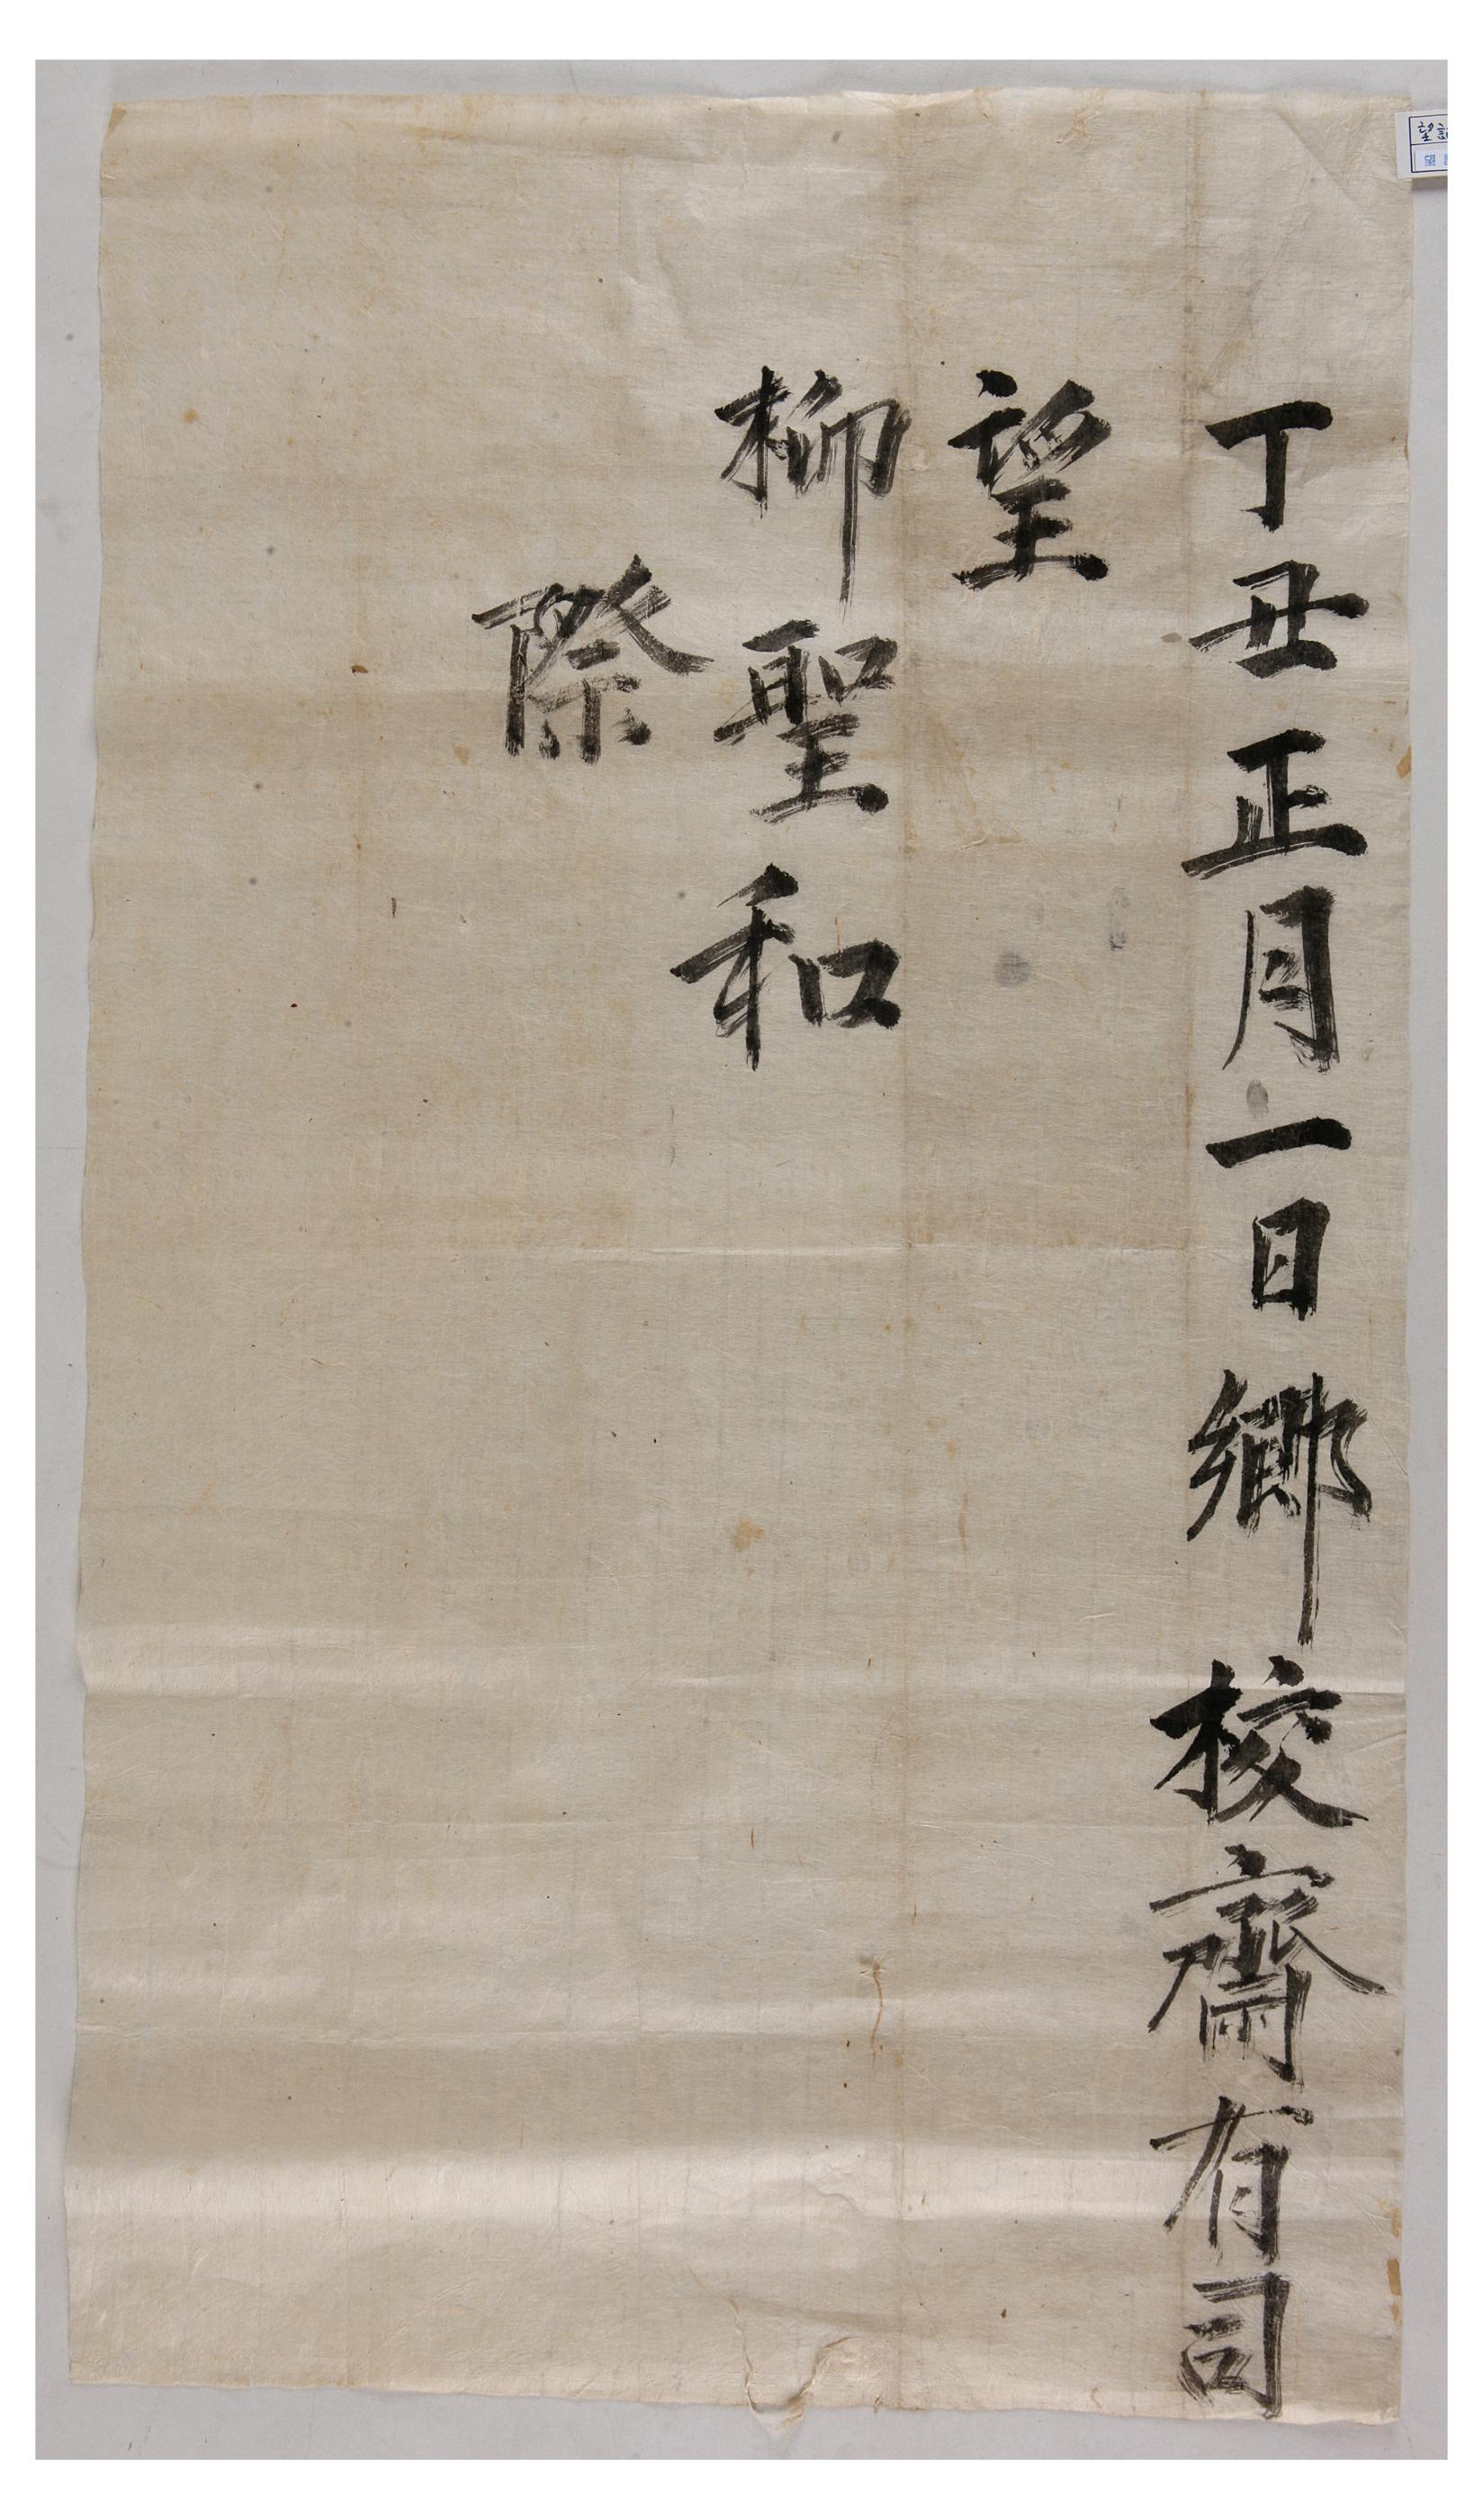 丁丑正月一日鄕校齋有司
望
柳聖和
際
望
望